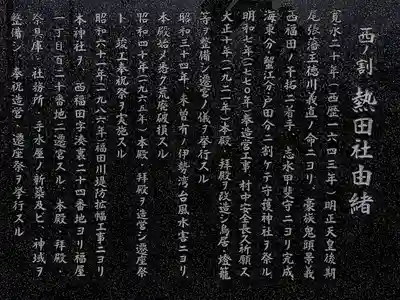 西ノ割 熱田社由緒
寛永二十年(西歴一六四三年)明正天皇後期
尾張藩主徳川義直ノ命ニヨリ、豪族鬼頭景義、
西福田ノ干拓ニ着手、志水甲斐守ニヨリ完成、
海東分、蟹江分、戸田分ニ割ケテ守護神社ヲ祭ル、
明和七年(一七七〇年)奉造営工事、村中安全長久祈願ス
大正十年(一九二一年)本殿、拝殿ヲ改造シ鳥居、燈籠
等ヲ整備シ遷宮ノ儀ヲ挙行スル
昭和三十四年、未曽有ノ伊勢湾台風水害ニヨリ、
本殿始メ悉ク荒廃破損スル
昭和四十年(一九六五年)本殿、拝殿ヲ造営シ遷座祭
ト、竣工奉祝祭ヲ実施スル
昭和六十一年(一九八六年)福田川堤防拡幅工事ニヨリ
本神社ヲ、西福田字湊裏二十四番地ヨリ福屋
一丁目百二十番地ニ遷宮スル、本殿・拝殿・
祭具庫・社務所・手水屋ノ新築及ビ、神域ヲ
整備シ、奉祝造営、遷座祭ヲ挙行スル